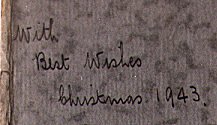 With
Best Wishes
Christmas 1943.